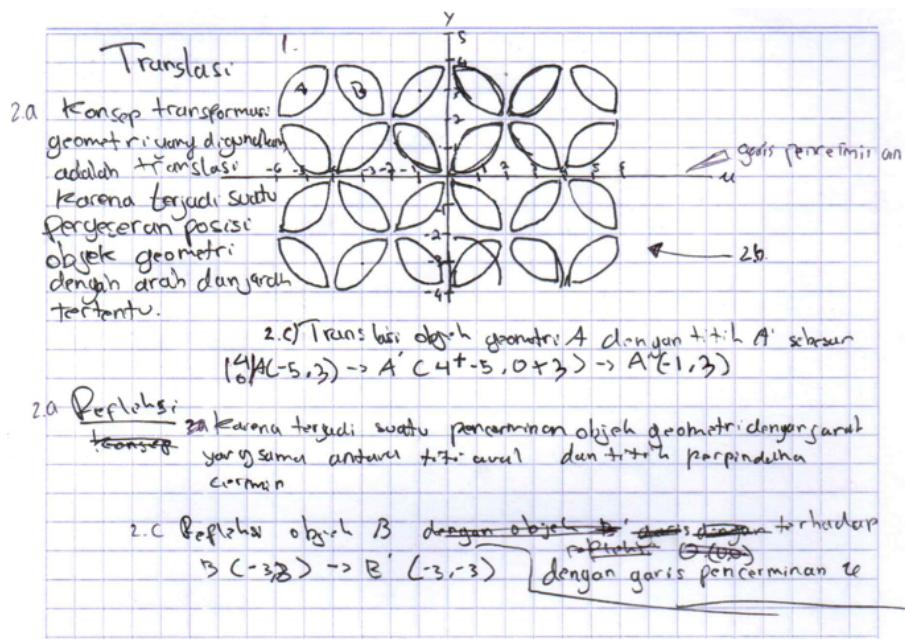 Translasi
1.
y
5
4
3
2
1
A B
2.a Konsep transformasi
geometri yang digunakan
adalah translasi
karena terjadi suatu
pergeseran posisi
objek geometri
dengan arah dan jarak
tertentu.
-6 -5 -3 -2 -1 1 2 3 4 5 6
garis pencerminan
x
-1
-2
-3
-4
2b.
2.c) Translasi objek geometri A dengan titik A' sebesar
(4 0) A(-5,3) -> A' (4+-5, 0+3) -> A'(-1,3)
2.a Refleksi
konsep
karena terjadi suatu pencerminan objek geometri dengan jarak
yang sama antara titi awal dan titik perpindaha
cermin
2.c Refleksi objek B dengan objek B' garis dengan terhadap
refleksi O (0,0)
B (-3,3) -> B' (-3,-3) dengan garis pencerminan x